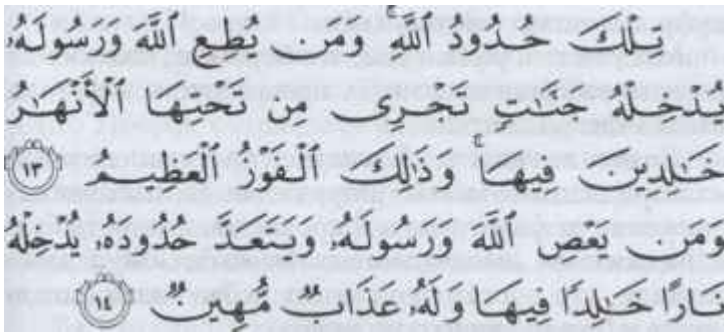 تِلْكَ حُدُودُ ٱللَّهِ ۚ وَمَن يُطِعِ ٱللَّهَ وَرَسُولَهُۥ
يُدْخِلْهُ جَنَّـٰتٍ تَجْرِى مِن تَحْتِهَا ٱلْأَنْهَـٰرُ
خَـٰلِدِينَ فِيهَا ۚ وَذَٰلِكَ ٱلْفَوْزُ ٱلْعَظِيمُ ١٣
وَمَن يَعْصِ ٱللَّهَ وَرَسُولَهُۥ وَيَتَعَدَّ حُدُودَهُۥ يُدْخِلْهُ
نَارًا خَـٰلِدًا فِيهَا وَلَهُۥ عَذَابٌ مُّهِينٌ ١٤